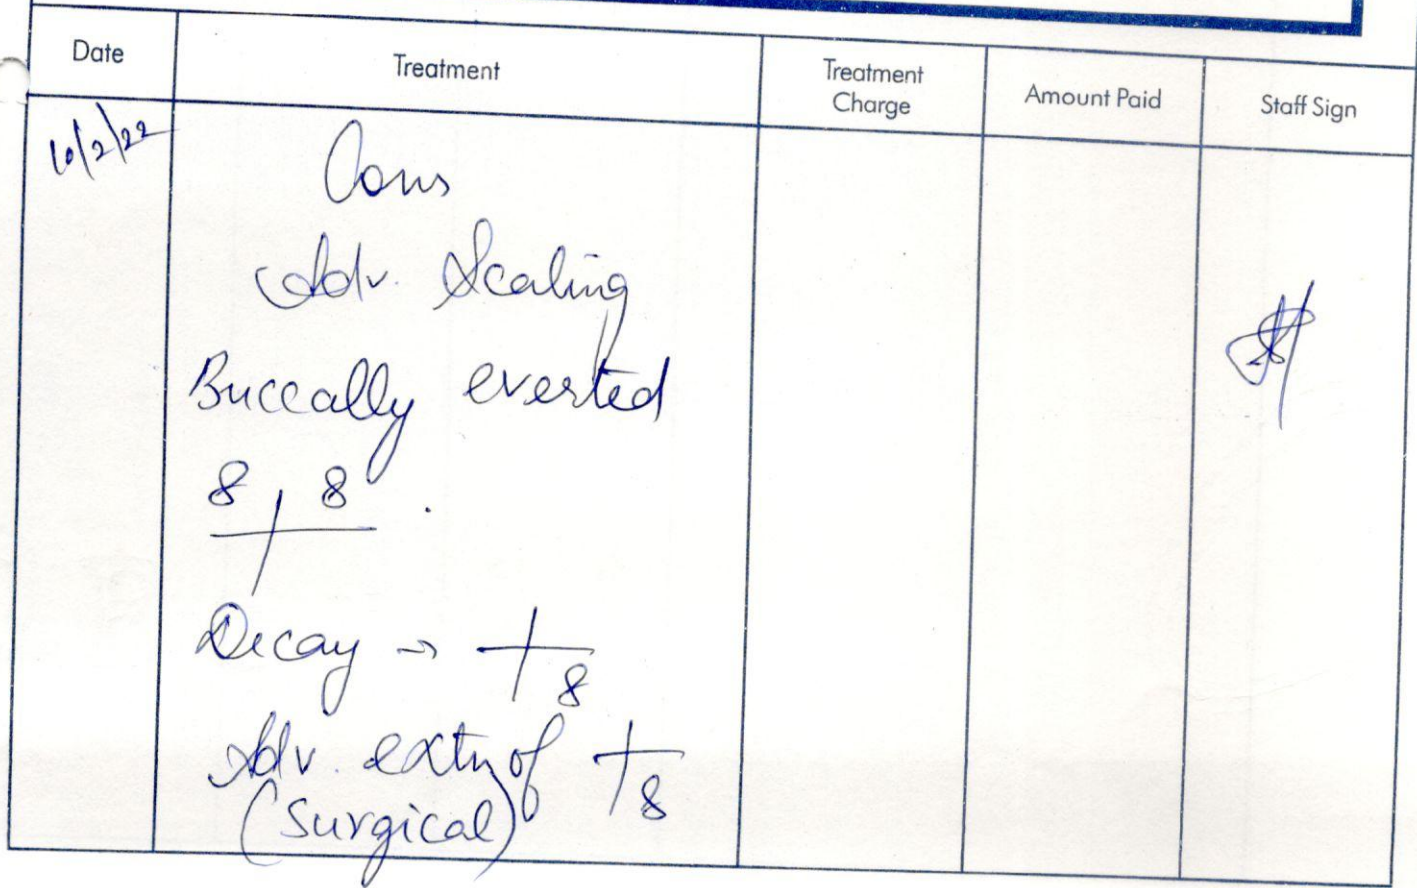 Date Treatment Treatment Charge Amount Paid Staff Sign
10/2/22
Cons
Adv. Scaling
Buccally everted
8 | 8
Decay → 8
Adv. extn of 8
(Surgical)